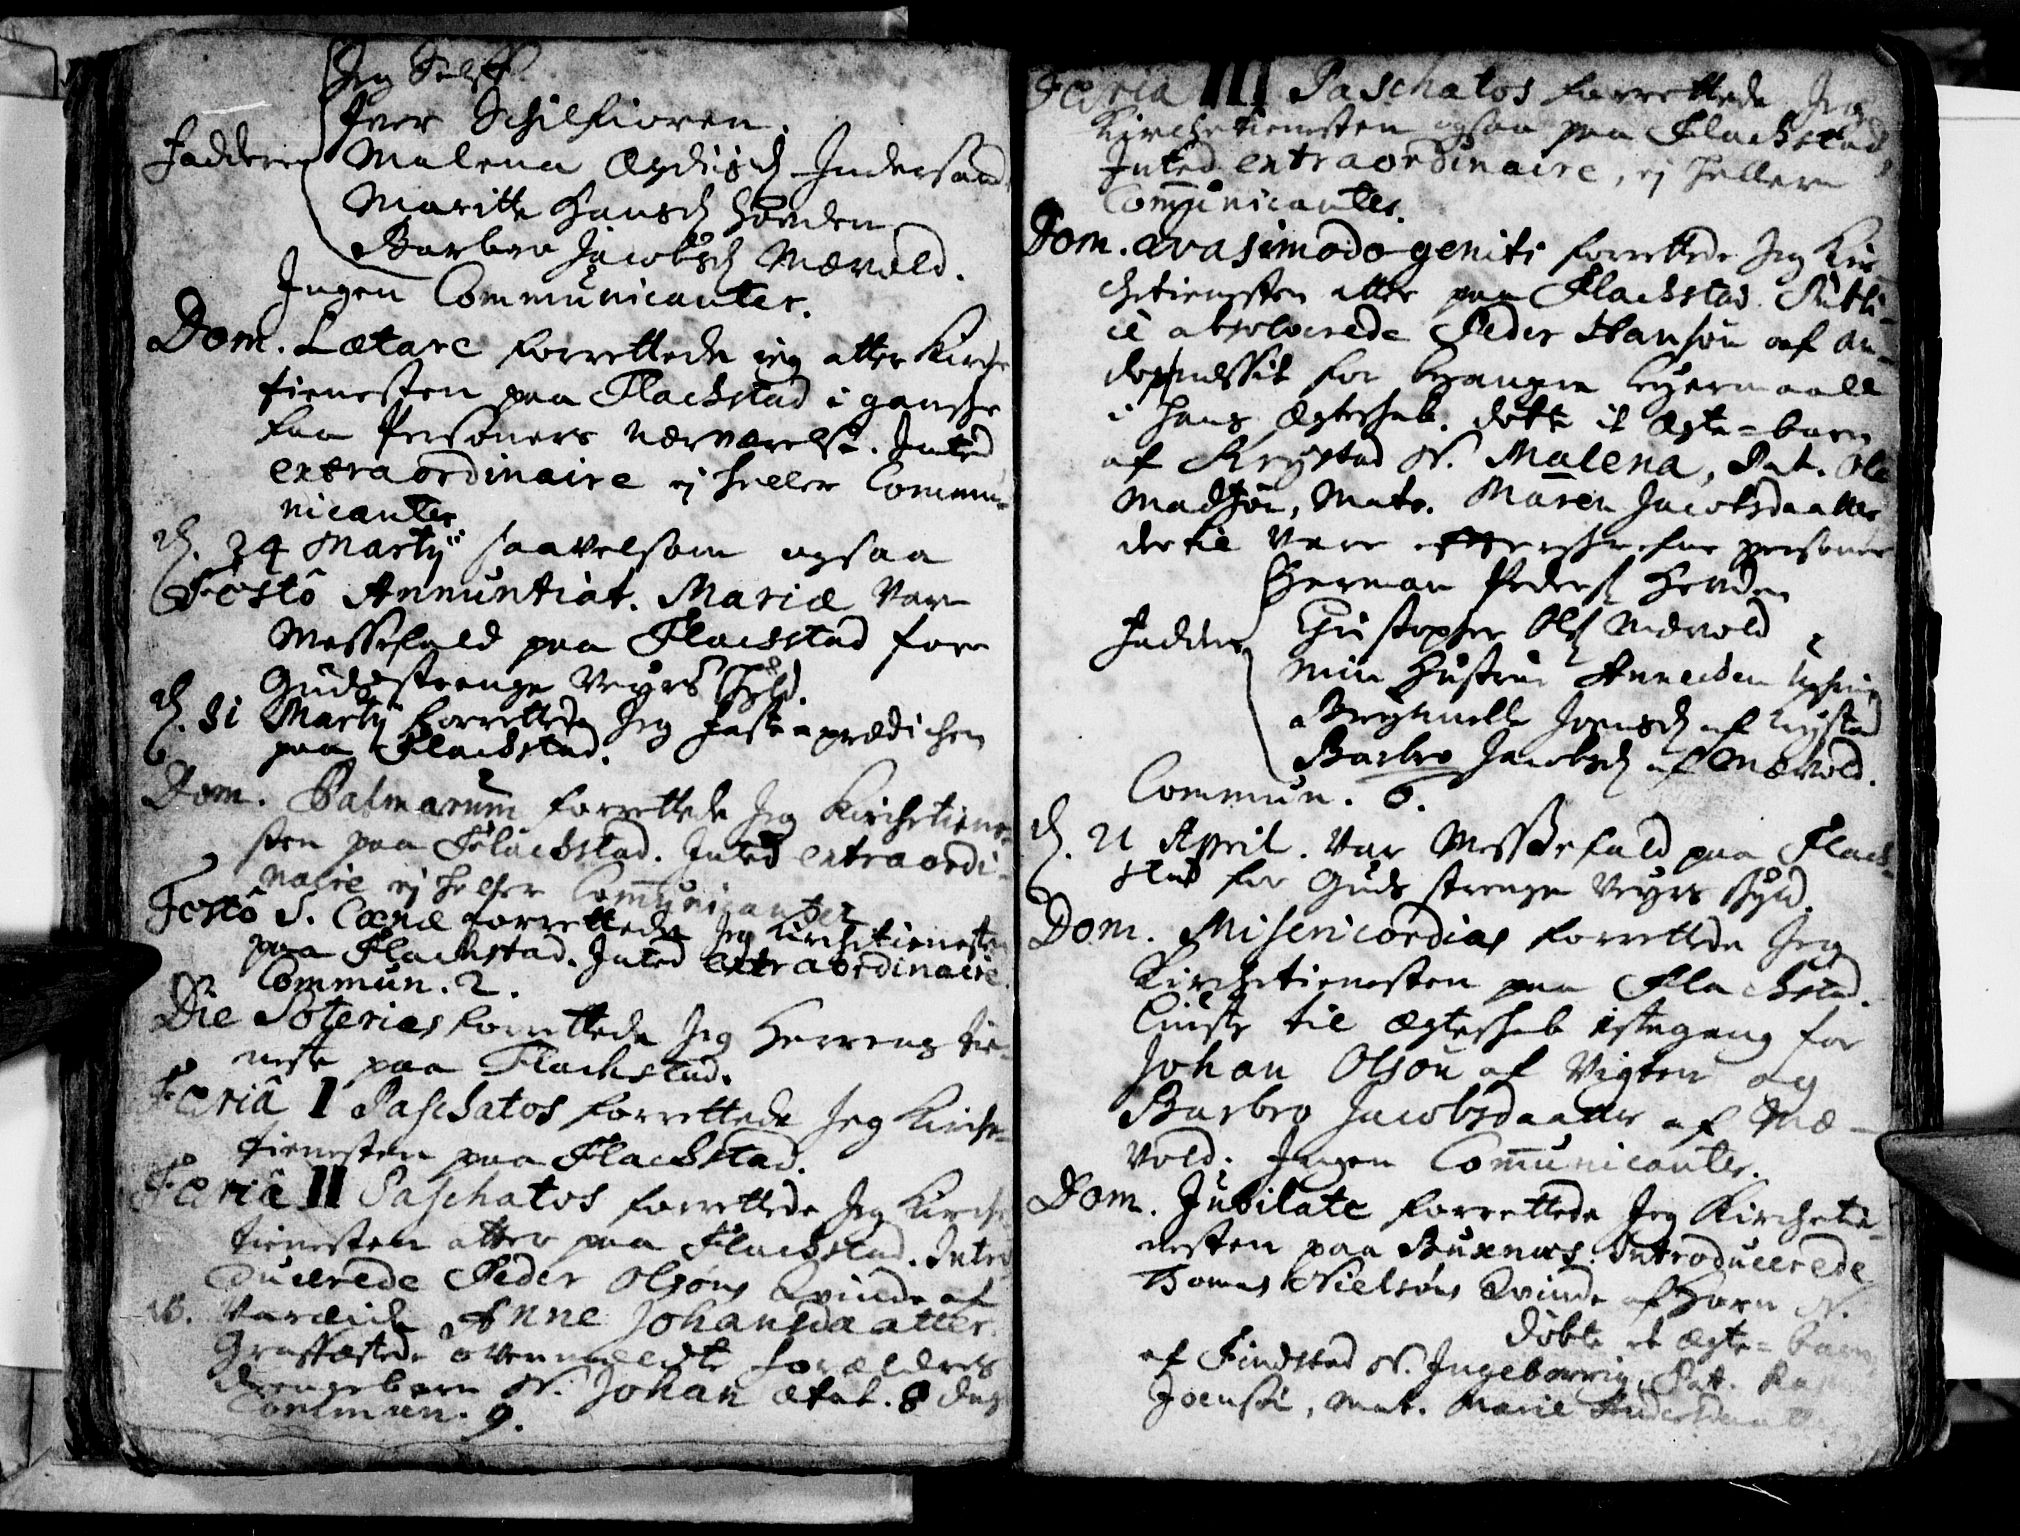 Jeg Sielff
Iver Schilfioren.
Faddere Malena Ægdiisd Indersand
Maritte Hansd Horden
Barbra Jacobsd Nævold.
Ingen Communicanter.
Dom. Lætare forrettede jeg atter Kirche
tienesten paa Flachstad i ganske
faa Personers nærværelse. Inted
extraordinaire ej heller Commu-
nicanter.
d. 24 Martij saavelsom ogsaa
Festô Annuntiat. Mariæ var
Messefald paa Flachstad for
Guds strenge Veyrs skyld.
d. 31 Martij forrettede Jeg fasteprædichen
paa Flachstad.
Dom. Palmarum forrettede Jeg Kirchetiene-
sten paa Flachstad. Inted extraordi-
naire ej heller Communicanter
Festô S. Cænæ forrettede Jeg Kirchetienesten
paa Flachstad. Inted extraordinaire.
Commun. 2.
Die Soterias forrettede Jeg Herrens tie-
neste paa Flachstad.
Feriâ I Paschatos forrettede Jeg Kirche-
tienesten paa Flachstad.
Feriâ II Paschatos forrettede Jeg Kirche
tienesten atter paa Flachstad. Intro
ducerede Peder Olsøns Qvinde af
Vareide Anne Johansdaatter.
Grafæstede ovenmeldte forældres
drengebarn N. Johan ætat. 8 dag
Commun. 9.
Feria III Paschatos forrettede Jeg
Kirchetienesten ogsaa paa Flachstad,
Inted extraordinaire, ej hellere
Communicanter.
Dom. Qvasimodogeniti forrettede Jeg Kir-
chetienesten atter paa Flachstad. Publi-
cè absolverede Peder Hansøn af An-
for begangne leyermaall
i hans Ægteskab. døbte it Ægte-barn
af Krystad N. Malena, Pat. Ole
Madsøn, Matr. Maren Jacobsdaatter
dertil vare efterskrefne personer
Herman Peders. Horden
Fadder Christopher Ols. Nævold
min Hustrue Anne
Jonsd af Krystad
Barbro Jacobsd af Nævold.
Commun. 6.
d. 21 April. var Messefald paa Flach-
stad for Guds strenge Veyrs skyld.
Dom. Misericordias forrettede Jeg
Kirchetienesten paa Flachstad.
Liuste til Ægteskab 1ste gang for
Johan Olsøn af Vigten og
Barbro Jacobsdaatter af Næ-
vold. Ingen Communicanter.
Dom. Jubilate forrettede Jeg Kirchetie-
nesten paa Buxnæs. Introducerede
Thomas Nielsøns Qvinde af Horn N.
døbte et Ægte-barn
af Findstad N. Ingeborrig, Pat.
Joensøn, Mat. Marie Andersdaatter